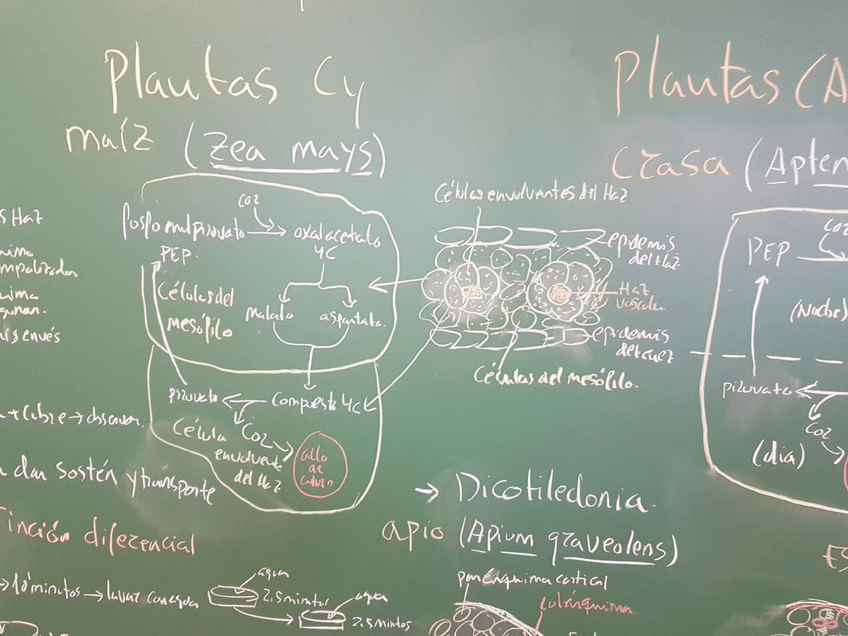 Plantas C4
maíz (Zea mays)
CO2
fosfoenolpiruvato
oxalacetato
4C
PEP.
Células del
mesófilo
malato
aspartato
piruvato
Compuesto 4C
CO2
Célula
envolvente
del Haz
Células envolventes del Haz
epidermis
del Haz
Haz
epidermis
Células del mesófilo.
Plantas (A
Crasa (Apten
CO2
PEP
(Noche)
piruvato
CO2
(día)
s Haz
n + Cubre → observar.
dan sostén y transporte
Tinción diferencial
→ 10 minutos → lavar con agua
agua
2,5 minutos
agua
2.5 minutos
→ Dicotiledonia.
apio (Apium graveolens)
parénquima cortical
colénquima